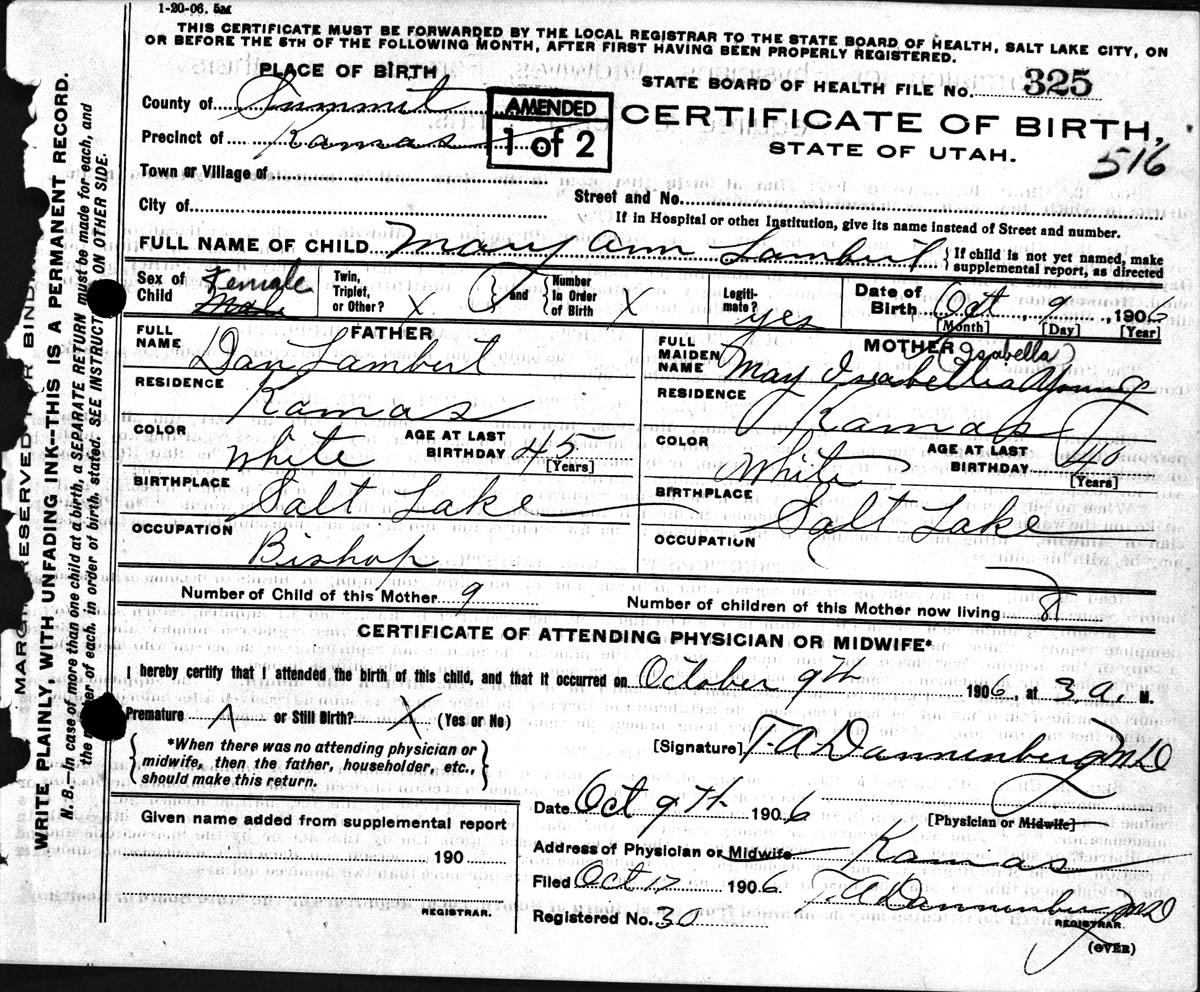 1-20-06. 5M
THIS CERTIFICATE MUST BE FORWARDED BY THE LOCAL REGISTRAR TO THE STATE BOARD OF HEALTH, SALT LAKE CITY, ON
OR BEFORE THE 5TH OF THE FOLLOWING MONTH, AFTER FIRST HAVING BEEN PROPERLY REGISTERED.
PLACE OF BIRTH
STATE BOARD OF HEALTH FILE No. 325
County of Summit
AMENDED
1 of 2
CERTIFICATE OF BIRTH,
STATE OF UTAH.
516
Precinct of Kamas
Town or Village of
Street and No.
City of
If in Hospital or other Institution, give its name instead of Street and number.
FULL NAME OF CHILD Mary Ann Lambert {If child is not yet named, make
supplemental report, as directed
Sex of Child Female Male
Twin, Triplet, or Other? X and {Number In Order of Birth X
Legiti- mate? yes
Date of Birth Oct 9, 1906
[Month] [Day] [Year]
FATHER
FULL NAME Dan Lambert
RESIDENCE
Kamas
COLOR White AGE AT LAST BIRTHDAY 45
[Years]
BIRTHPLACE Salt Lake
OCCUPATION
Bishop
MOTHER (Isabella)
FULL MAIDEN NAME May Isabellia Young
RESIDENCE
Kamas
COLOR White AGE AT LAST BIRTHDAY 40
[Years]
BIRTHPLACE Salt Lake
OCCUPATION
Number of Child of this Mother 9
Number of children of this Mother now living 8
CERTIFICATE OF ATTENDING PHYSICIAN OR MIDWIFE*
I hereby certify that I attended the birth of this child, and that it occurred on October 9th 1906, at 3 A. M.
Premature X or Still Birth? X (Yes or No)
{*When there was no attending physician or
midwife, then the father, householder, etc.,
should make this return.}
[Signature] T. A Dannenberg MD
[Physician or Midwife]
Given name added from supplemental report
190
REGISTRAR.
Date Oct 9th 1906
Address of Physician or Midwife Kamas
Filed Oct 17 1906 T. A Dannenberg MD
REGISTRAR.
Registered No. 30
(OVER)
MARGIN RESERVED FOR BINDING
WRITE PLAINLY, WITH UNFADING INK—THIS IS A PERMANENT RECORD.
N. B.—In case of more than one child at a birth, a SEPARATE RETURN must be made for each, and
the number of each, in order of birth, stated. SEE INSTRUCTIONS ON OTHER SIDE.